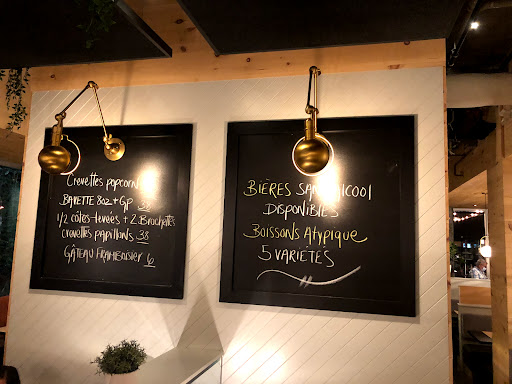 Crevettes popcorn
BAVETTE 8OZ + GP 38
1/2 côtes-levées + 2 Brochettes
crevettes papillons 38
GÂTEAU FRAMBOISIER 6
BIÈRES SANS ALCOOL
DISPONIBLES
BOISSONS ATYPIQUE
5 VARIÉTÉS